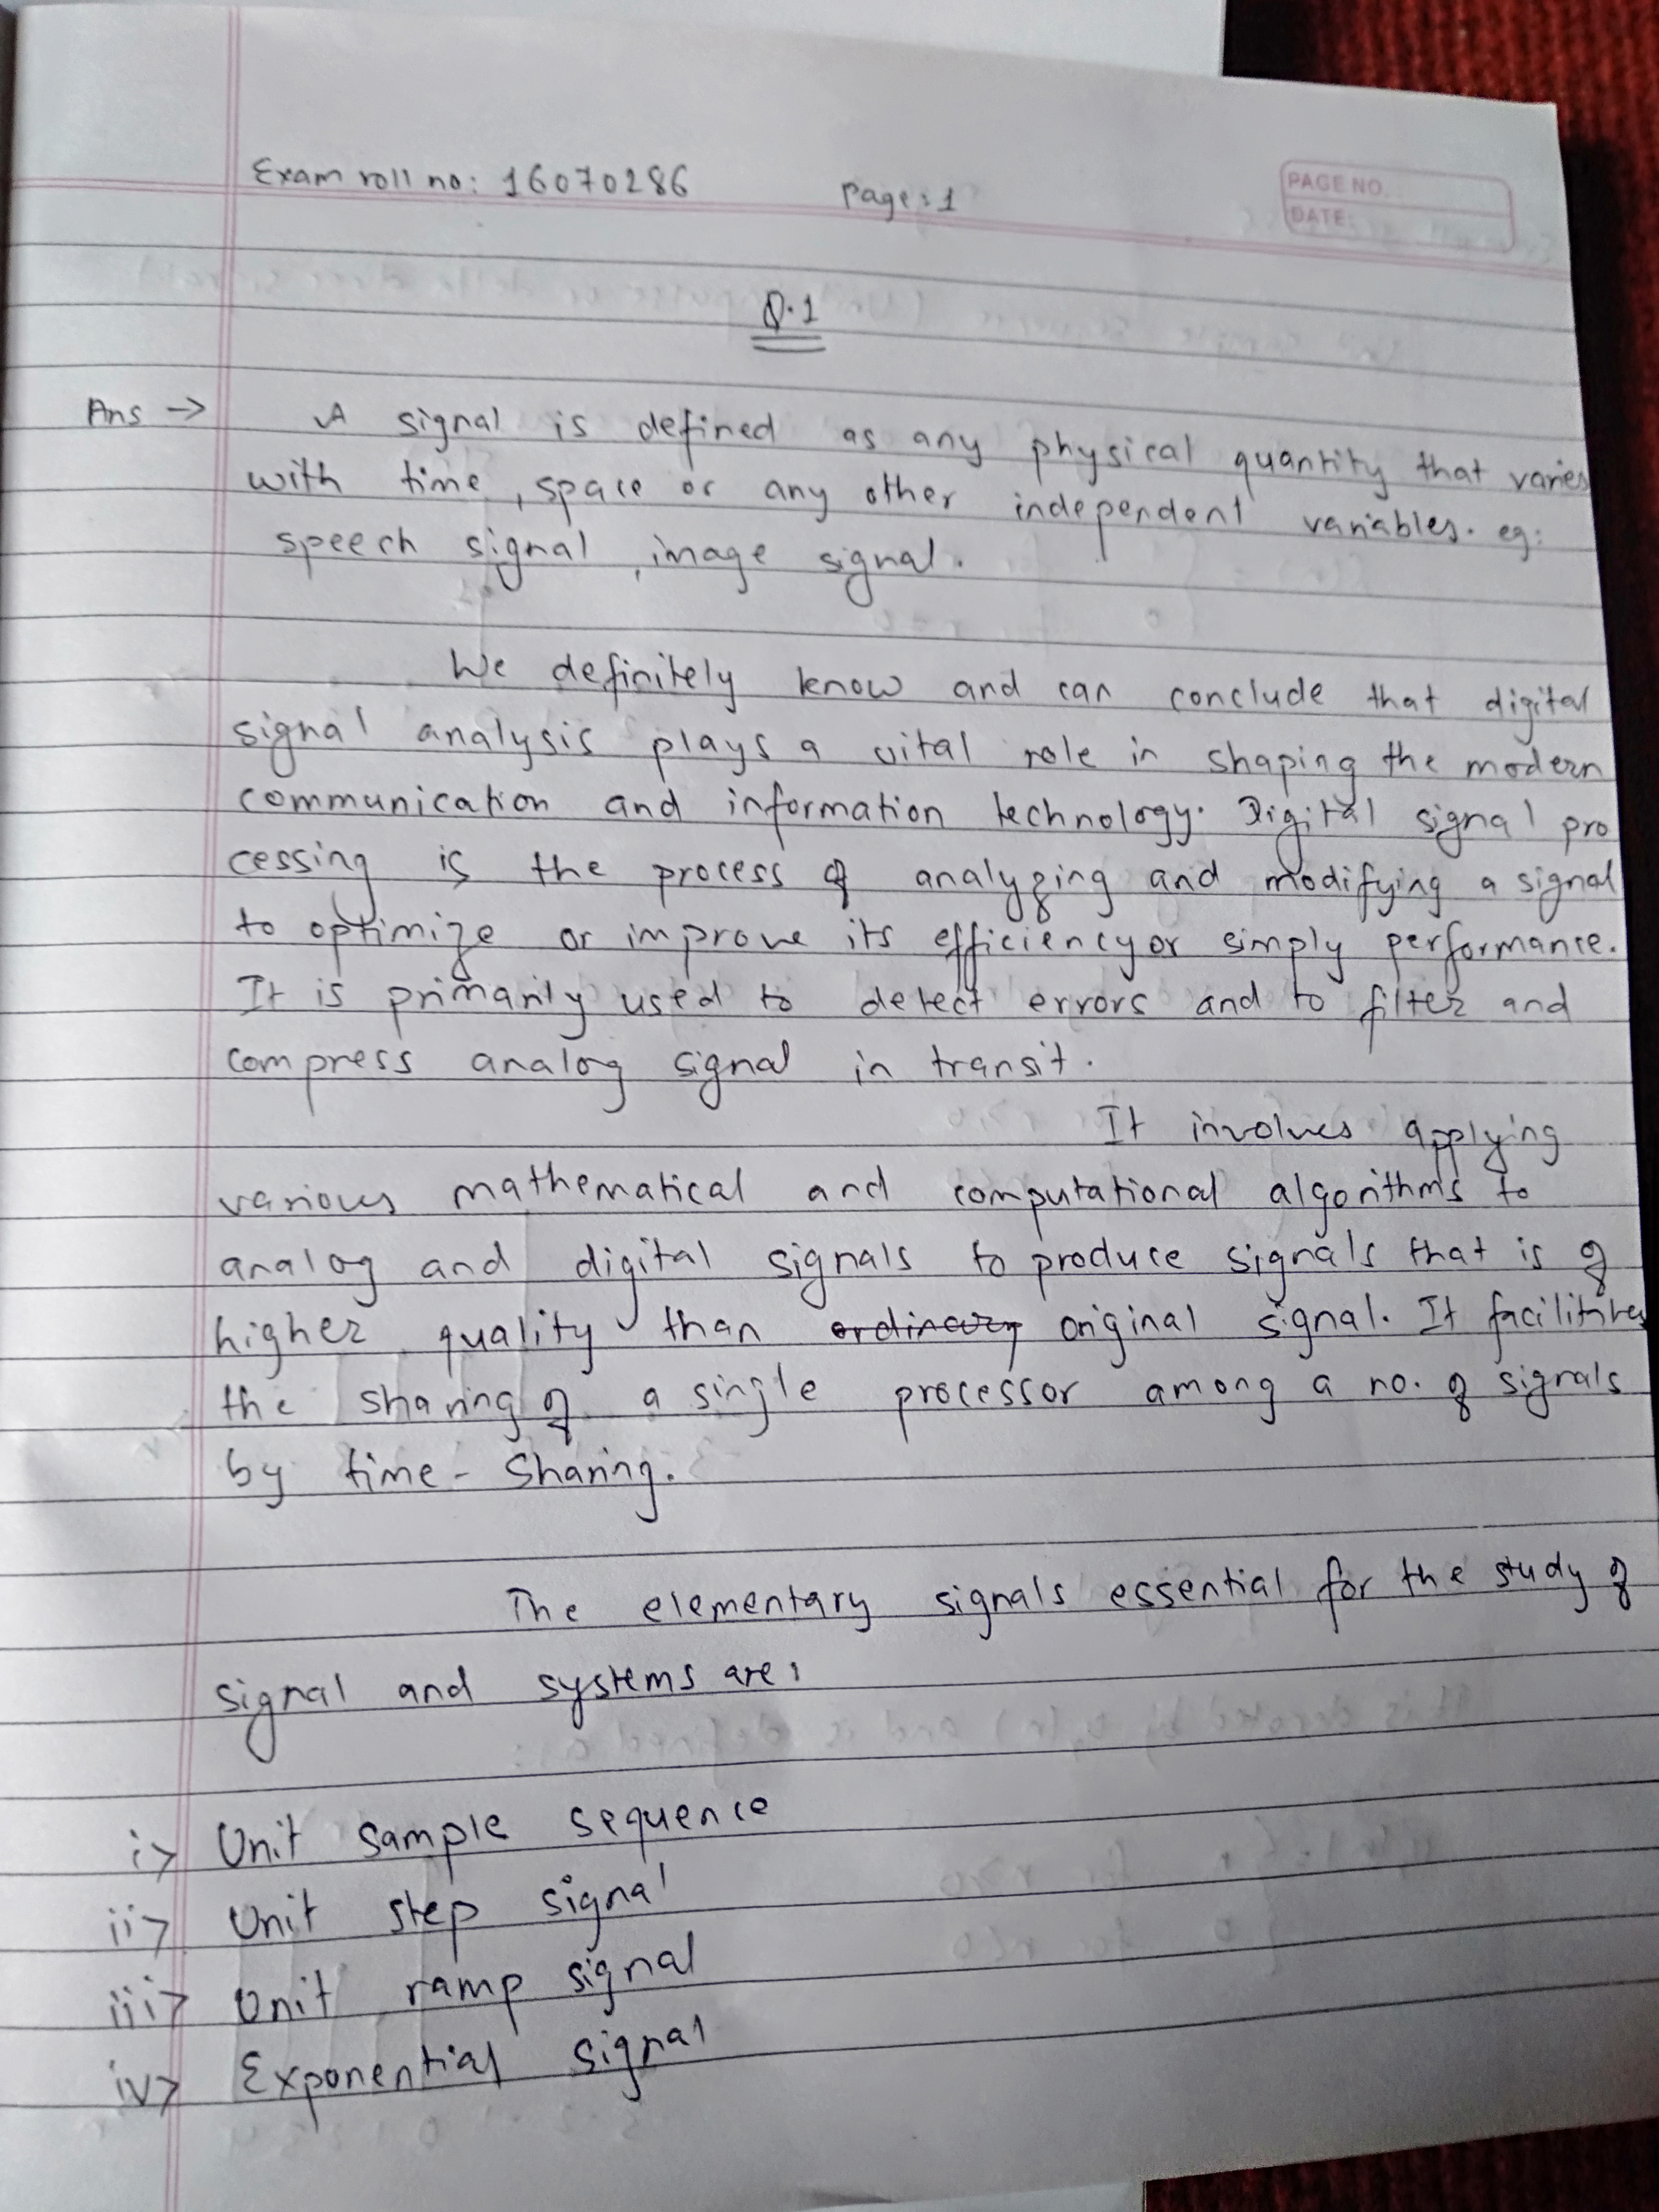 Exam roll no: 16070286 Page: 1
PAGE NO.
DATE:
Q.1
Ans → A signal is defined as any physical quantity that varies
with time, space or any other independent variables. eg:
speech signal, image signal.
We definitely know and can conclude that digital
signal analysis plays a vital role in shaping the modern
communication and information technology. Digital signal pro
cessing is the process of analyzing and modifying a signal
to optimize or improve its efficiency or simply performance.
It is primarily used to detect errors and to filter and
compress analog signal in transit.
It involves applying
various mathematical and computational algorithms to
analog and digital signals to produce signals that is of
higher quality than ordinary original signal. It facilitites
the sharing of a single processor among a no. of signals
by time-sharing.
The elementary signals essential for the study of
signal and systems are:
i> Unit sample sequence
ii> Unit step signal
iii> Unit ramp signal
iv> Exponential signal